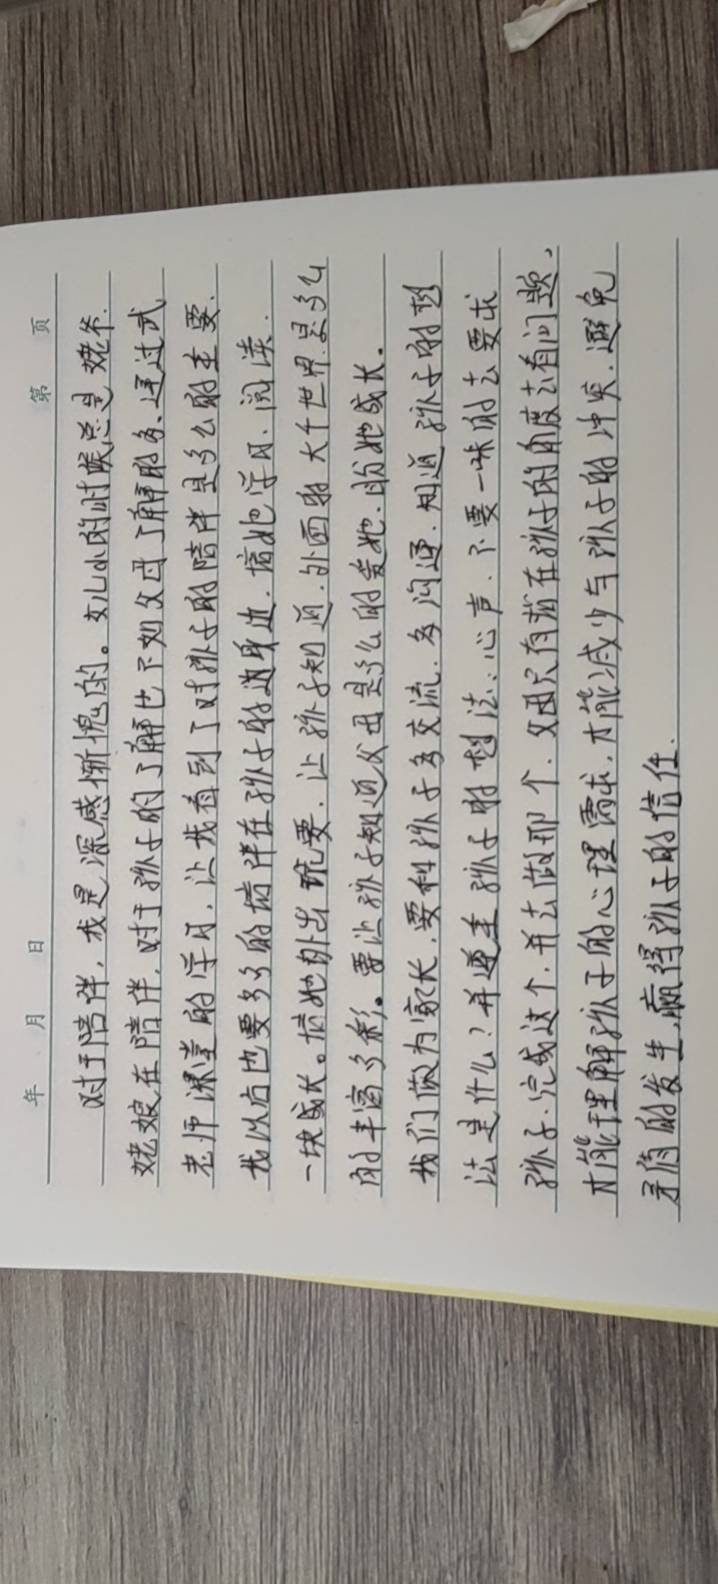 年 月 日 第 页
对于陪伴,我是深感惭愧的。女儿小的时候总是姥爷.
姥娘在陪伴,对于孩子的了解也不如父母了解的多、通过武
老师课堂的学习,让我看到了对孩子的陪伴是多么的主要.
我以后也要多多的陪伴在孩子的边身边.陪她学习、阅读.
一块成长。陪她外出玩耍.让孩子知道.外面的大千世界是多么
的丰富多彩。要让孩子知道父母是多么的爱她.盼她成长.
我们做为家长.要和孩子多交流.多沟通.知道孩子的想
法是什么?并遵重孩子的想法.心声.不要一味的去要求
孩子、完成这个.并去做那个.父母只有站在孩子的角度去看问题、
才能理解孩子的心理需求.才能减少与孩子的冲突.避免
矛盾的发生.赢得孩子的信任.